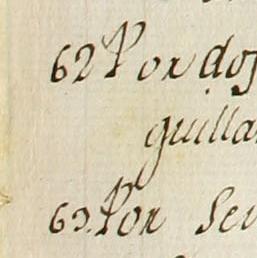 62 Por dos
guilla
63. Por Sei